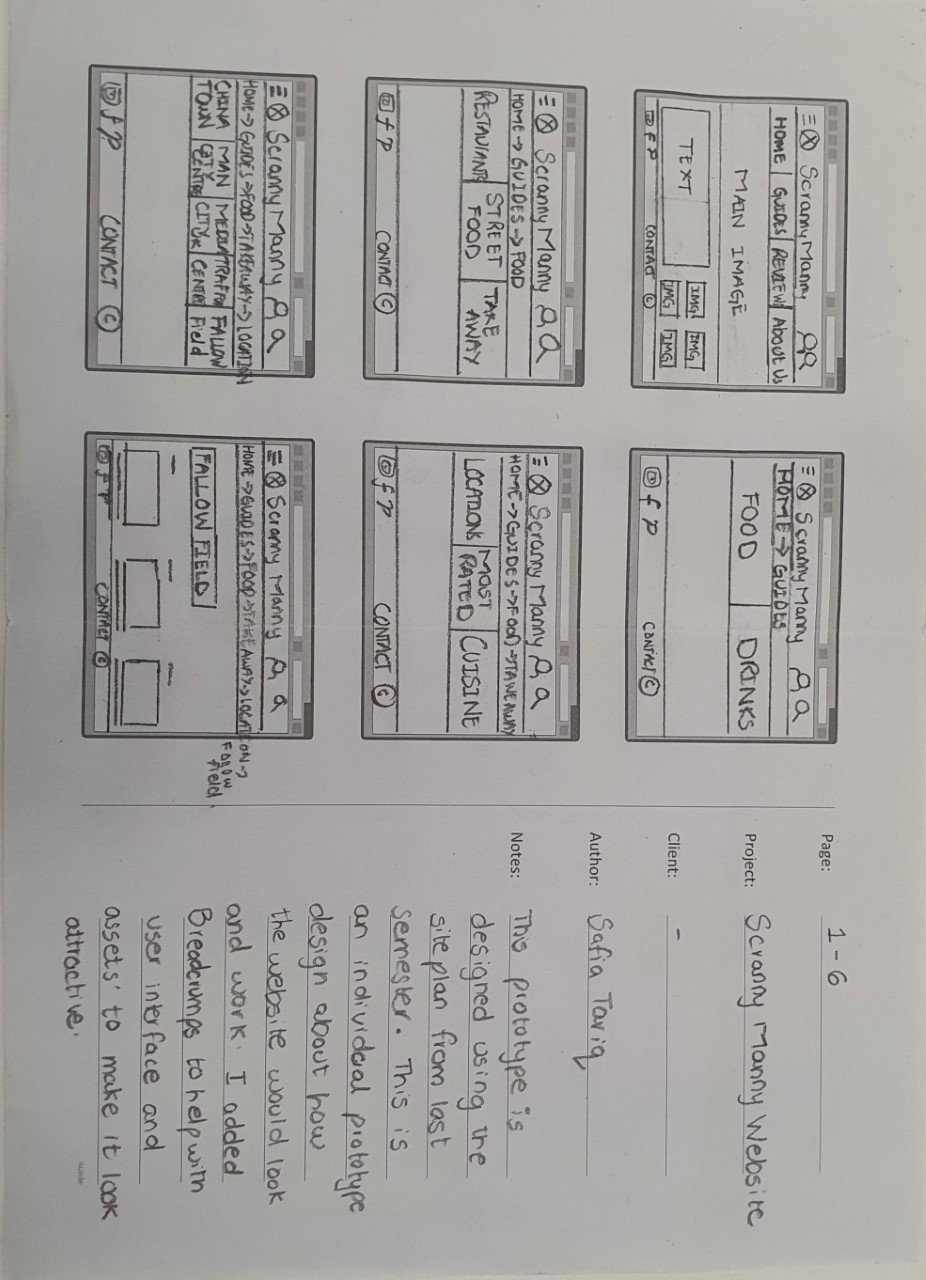 Scranny Manny
HOME GUIDES REVIEW ABOUT US
MAIN IMAGE
TEXT
IMG IMG
IMG IMG
f P CONTACT ©
Scranny Manny
HOME → GUIDES
FOOD DRINKS
f P CONTACT ©
Scranny Manny
HOME → GUIDES → FOOD
RESTAURANTS STREET FOOD TAKE AWAY
f P CONTACT ©
Scranny Manny
HOME → GUIDES → FOOD → TAWEAWAY
LOCATIONS MOST RATED CUISINE
f P CONTACT ©
Scranny Manny
HOME → GUIDES → FOOD → TAKEAWAY → LOCATION
CHINA MAN MEDIA TRAFFORD FALLOW
TOWN CITY CENTRE CITY UK CENTRE Field
f P CONTACT ©
Scranny Manny
HOME → GUIDES → FOOD → TAKEAWAY → LOCATION →
Fallow
field
FALLOW FIELD
f P CONTACT ©
Page: 1 - 6
Project: Scranny Manny Website
Client: -
Author: Safia Tariq
Notes: This prototype is
designed using the
site plan from last
semester. This is
an individual prototype
design about how
the website would look
and work. I added
Breadcrumps to help with
user interface and
assets' to make it look
attractive.